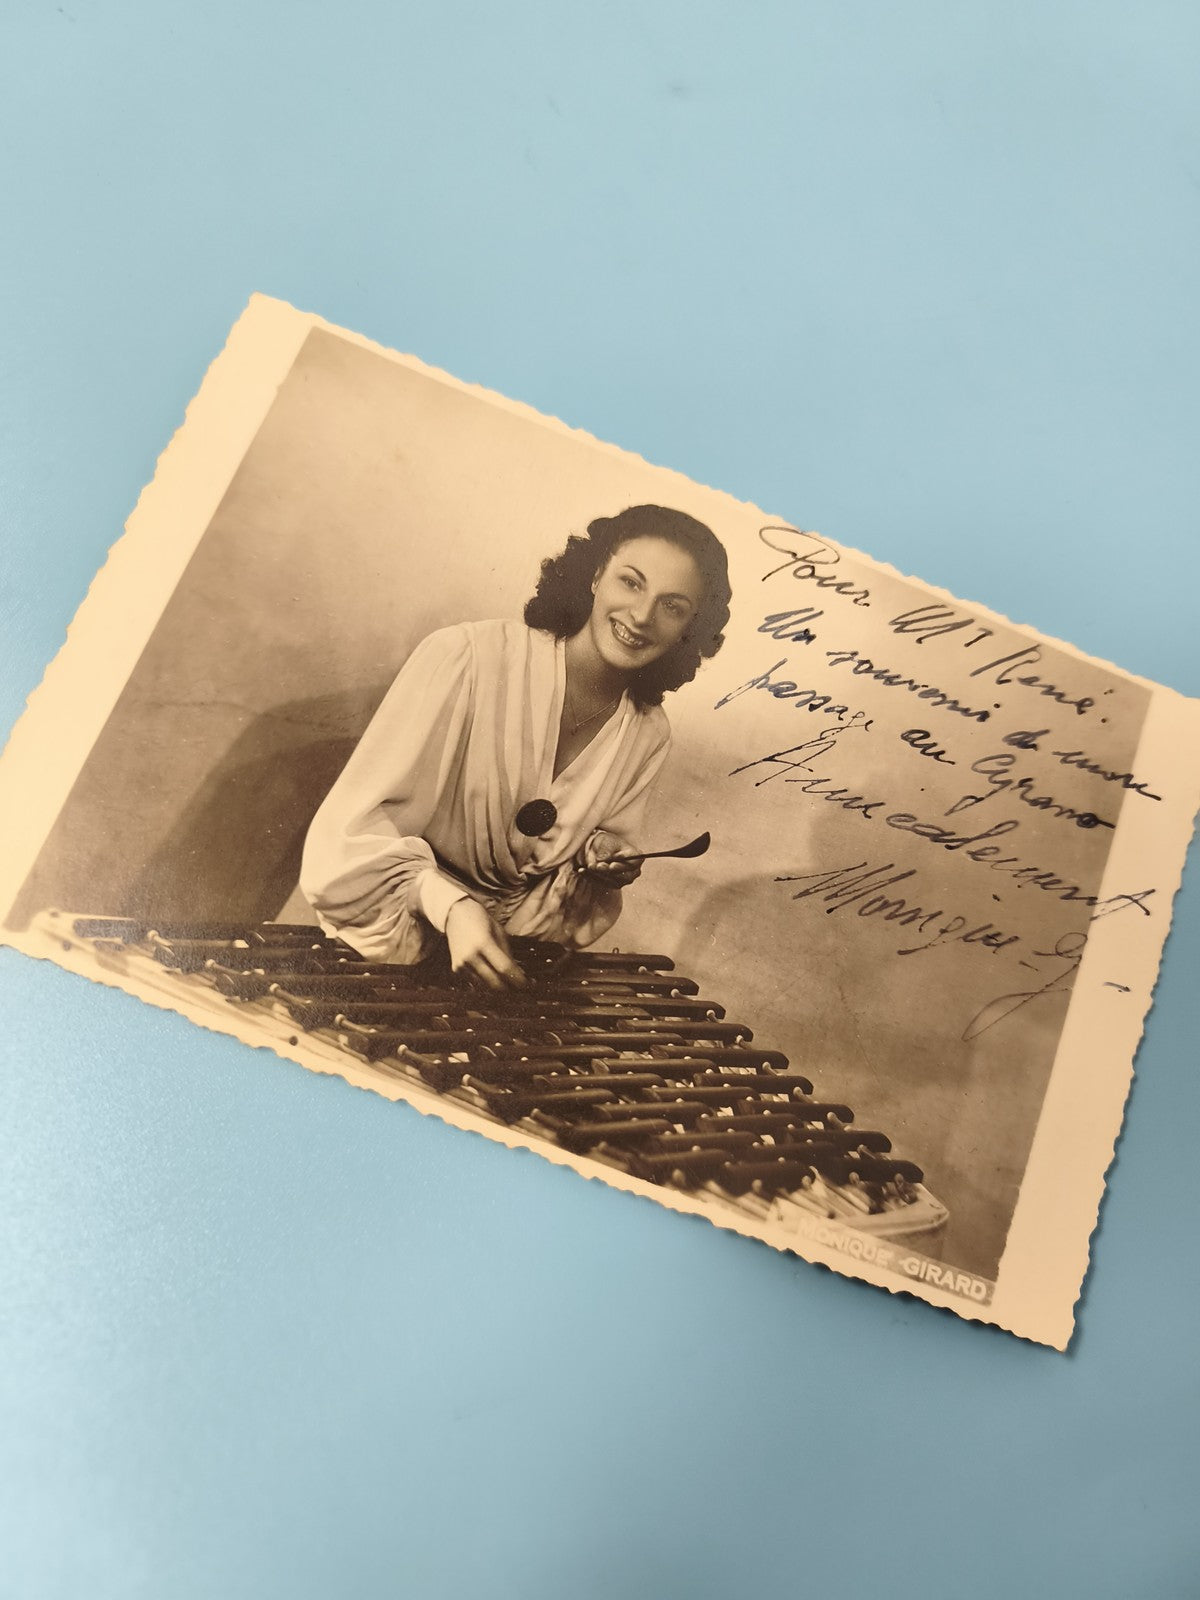 Pour Mr René.
Un souvenir de mon
passage au Cyrano
Amicalement
Monique G -
MONIQUE GIRARD